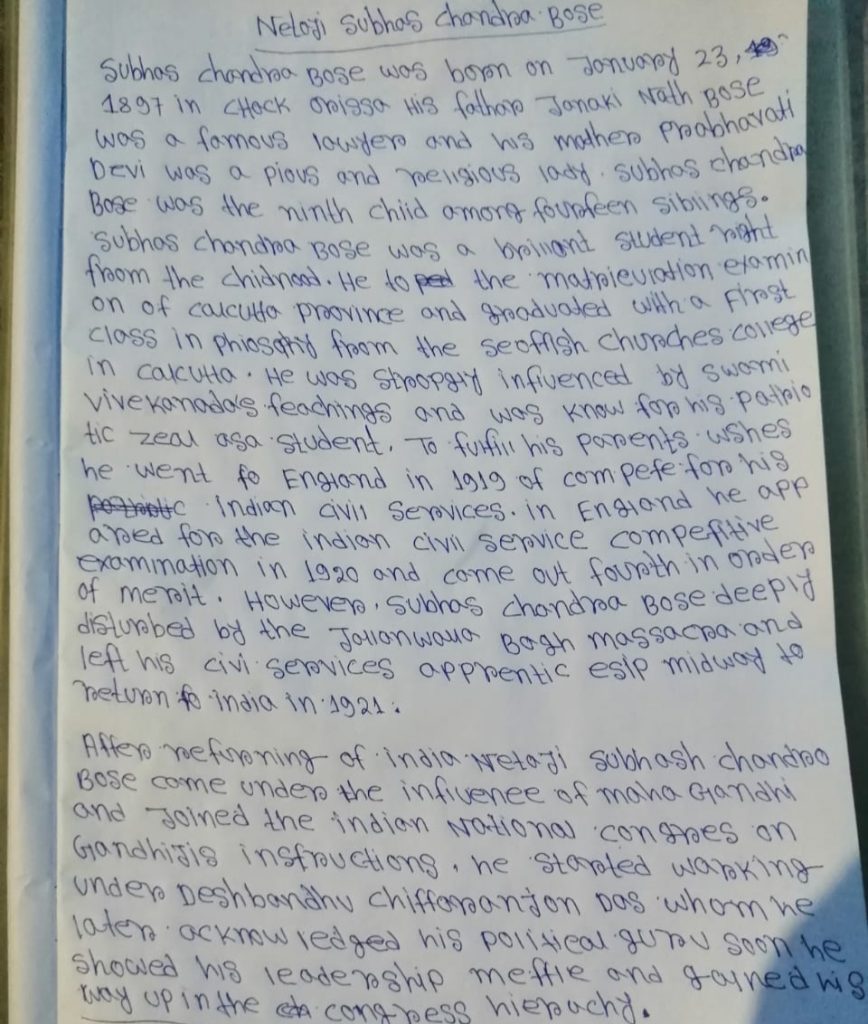 Netaji Subhas Chandra Bose
Subhas chandra Bose was born on January 23,
1897 in cttack orissa His father Janaki Nath Bose
was a famous lawyer and his mother Prabhavati
Devi was a pious and religious lady. Subhas chandra
Bose was the ninth chiid among fourfeen sibiings.
Subhas chandra Bose was a briliant student right
from the chidnood. He to the matrieuiation examin
on of caicutta province and graduated with a First
class in from the Seoffish churches college
in calcutta. He was infiuenced by swami
vivekanada's feachings and was know for his patrio
tic zeal as a student. To fulfill his parents wshes
he went fo England in 1919 of compefe for his
Indian civii services. in England he app
ared for the indian civii service compefitive
examination in 1920 and come out fourth in order
of merit. However, Subhas chandra Bose deeply
disturbed by the Jallanwalla Bagh massacra and
left his civi services apprentic esip midway to
return fo india in 1921.
After refurning of india Netaji Subhash chandra
Bose come under the infiuenee of maha Gandhi
and Joined the indian National congres on
Gandhijis insfructions. he started warking
under Deshbandhu chifforanjan Das whom he
later acknowledged his political guru soon he
showed his leadership meffie and gained his
way up in the congress hierachy.